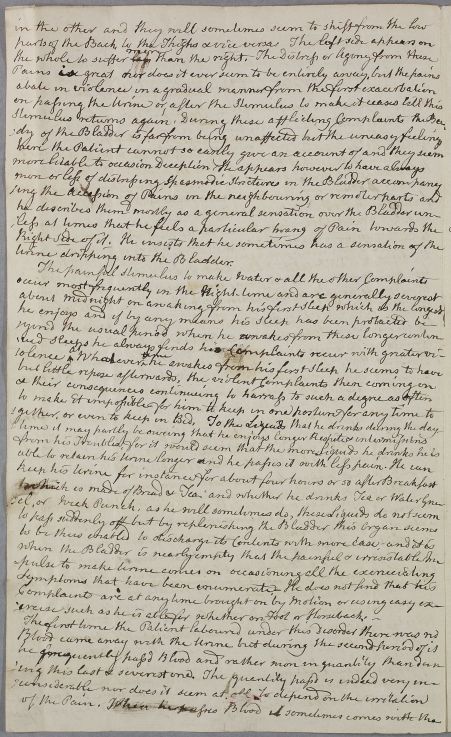 in the other and they will sometimes seem to shift from the low
parts of the Back to the Thighs & vice versa. The left side appears on
the whole to suffer more than the right. The distress or Agony from these
Pains is great nor does it ever seem to be entirely away, but the pains
abate in violence in a gradual manner from the first exacerbation
on passing the Urine or after the Stimulus to make it ceases till this
Stimulus returns again; during these afflicting Complaints the Bo-
dy of the Bladder is far from being unaffected but the uneasy feelings
here the Patient cannot so easily give an account of and they seem
more liable to occasion Deception. He appears however to have always
more or less of distressing Spasmodic Strictures in the Bladder accompany
ing the Accession of Pains on the neighbouring or remoter parts and
he describes them mostly as a general sensation over the Bladder un-
less at times that he feels a particular twang of Pain towards the
Right Side of it. He insists that he sometimes has a sensation of the
Urine dripping into the Bladder.
The painful Stimulus to make Water & all the other Complaints
occur most frequently in the Night-time and are generally severest
about midnight on awaking from his first Sleep which is the longest
he enjoys and if by any means his Sleep has been protracted be-
yond the usual period when he awakes from these longer contin-
ued sleeps he always finds his Complaints occur with greater vi-
olence. Whatever time he awakes from his first Sleep he seems to have
but little repose afterwards, the violent Complaints then coming on
& their consequences continuing to harrass to such a degree as often
to make it impossible for him to keep in one posture for any time to
gether, or even to keep in Bed. To the Liquids that he drinks during the day
time it may partly be owing that he enjoys longer Respite or intermissions
from his Troubles for it would seem that the more Liquids he drinks he is
able to retain his Urine longer and he passes it with less pain. He can
keep his Urine for instance for about four hours or so after Breakfast
which is made of Bread & Tea and whether he drinks Tea or Water Gru-
el, or Weak Punch, as he will sometimes do, these Liquids do not seem
to pass suddenly off but by replenishing the Bladder this organ seems
to be thus enabled to discharge its Contents with more ease and it is
when the Bladder is nearly empty that the painful & irresistable Im-
pulse to make Urine comes on occasioning all the excruciating
Symptoms that have been enumerated. He does not find that his
Complaints are at any time brought on by Motion or using easy ex-
ercise such as he is able for whether on Foot or Horseback.
The first time the Patient laboured under this disorder there was no
Blood came away with the Urine but during the second period of it
he frequently passed Blood and rather more in quantity than dur-
ing this last & severest one. The quantity passed is indeed very in-
considerable nor does it seem at all to depend on the irritation
of the Pain. When he passes Blood it sometimes comes with the